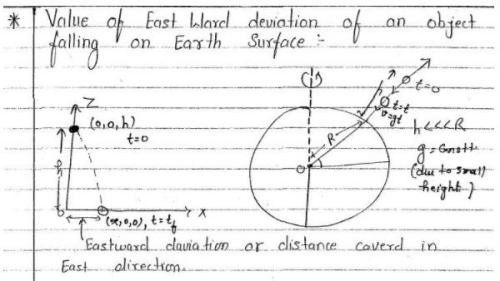 * Value of East Ward deviation of an object
falling on Earth Surface :-
Z
(0,0,h)
t=0
h
0
X
(x,0,0), t=tf
t=0
t=t
v=gt
R
O
h<<<R
g = Constt.
(due to small
height)
Eastward daviation or distance caverd in
East direction.